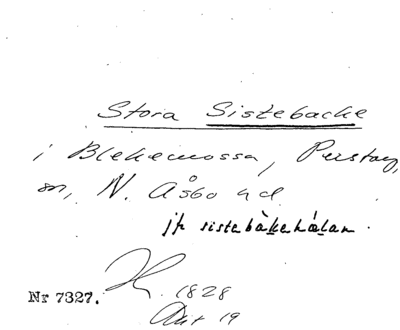 Stora Sistebacke
i Blekemossa, Perstorp,
sn, N. Åsbo hd
jfr sistebàkehálan.
Nr 7327.
H. 1828
Akt 19